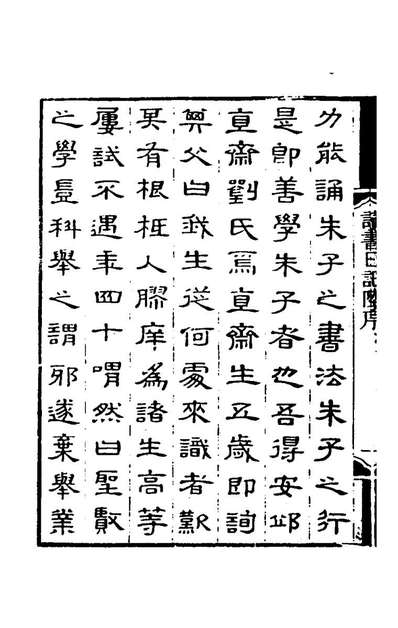 力能誦朱子之書法朱子之行
是即善學朱子者也吾得安邱
直齋劉氏焉直齋生五歲即詢
其父曰我生從何處來識者歎
其有根柢入膠庠為諸生高等
屢試不遇年四十喟然曰聖賢
之學豈科舉之謂邪遂棄舉業
讀書日記